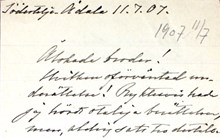 Södertelje-Ådala 11.7.07.
1907 11/7
Älskade broder!
Hvilken oförväntad un-
derrättelse! Ryktesvis had
jag hört otaliga berättelser
men, aldrig satt tro dertill.